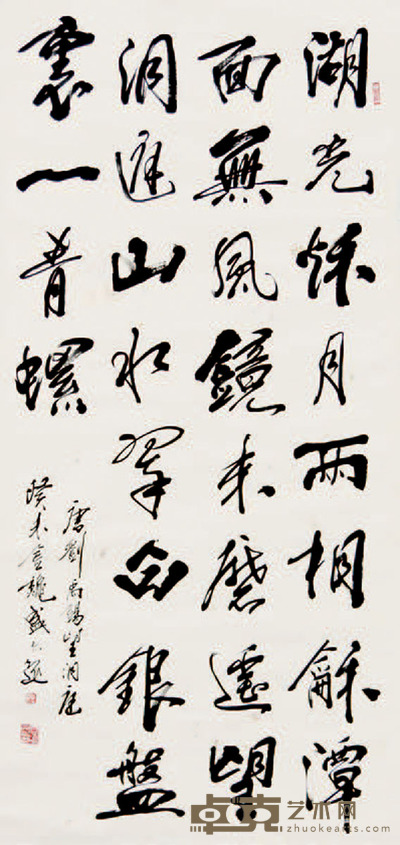 湖光秋月兩相龢潭
面無風鏡未磨遙望
洞庭山水翠白銀盤
裏一青螺
唐劉禹錫望洞庭
癸未
卓克艺术网
zhuokearts.com